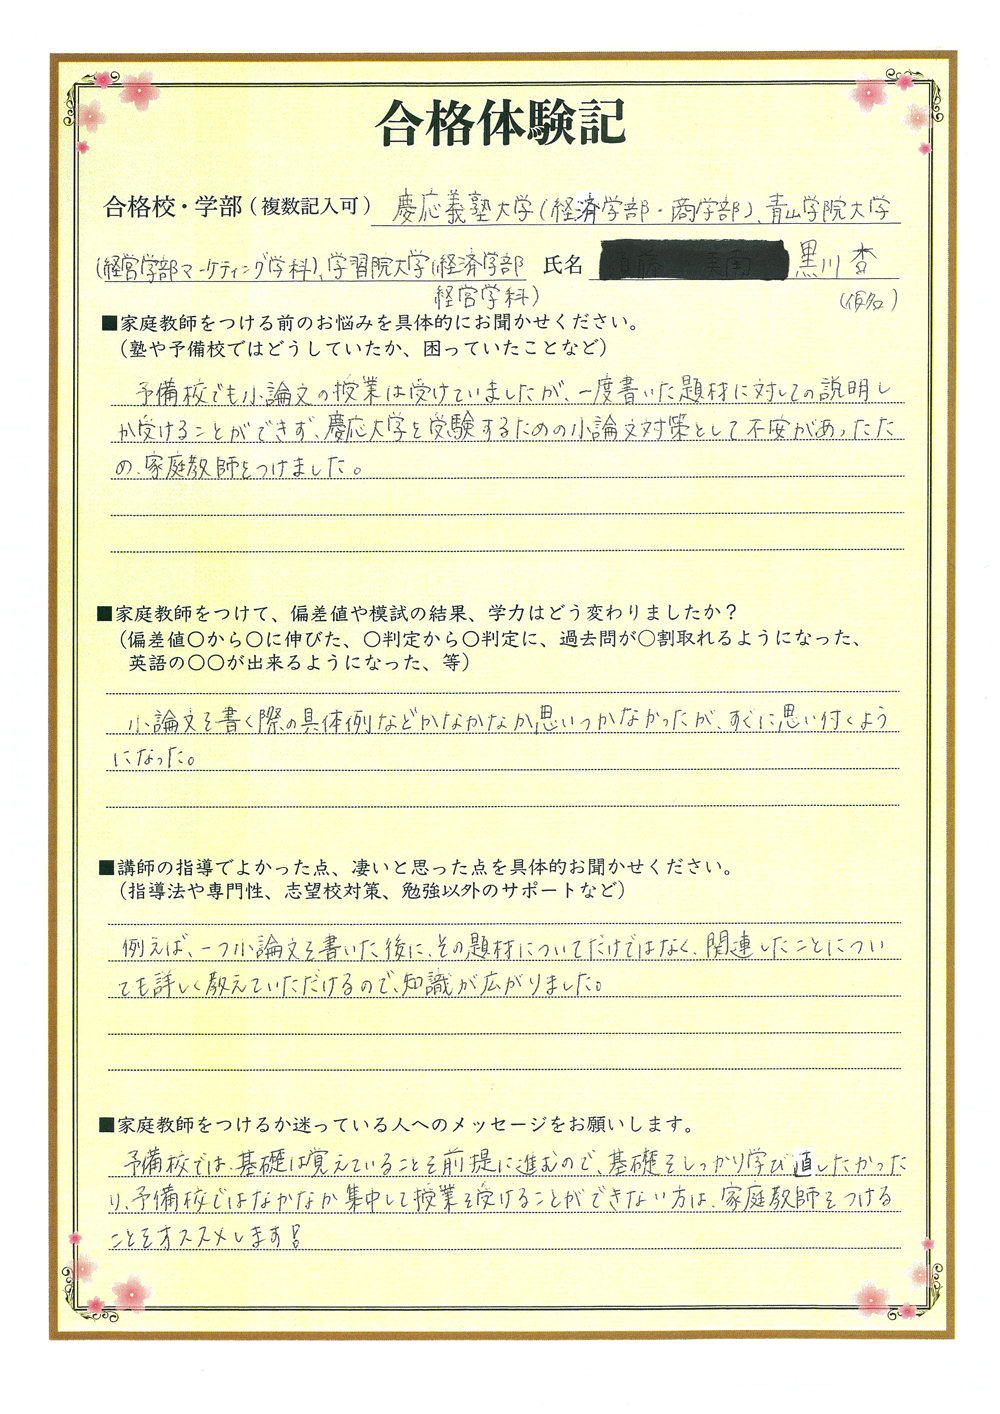 合格体験記
合格校・学部（複数記入可） 慶応義塾大学(経済学部・商学部)、青山学院大学
(経営学部マーケティング学科)、学習院大学(経済学部 氏名 黒川杏
経営学科) (仮名)
■家庭教師をつける前のお悩みを具体的にお聞かせください。
（塾や予備校ではどうしていたか、困っていたことなど）
予備校でも小論文の授業は受けていましたが、一度書いた題材に対しての説明し
か受けることができず、慶応大学を受験するための小論文対策として不安があったた
め、家庭教師をつけました。
■家庭教師をつけて、偏差値や模試の結果、学力はどう変わりましたか？
（偏差値〇から〇に伸びた、〇判定から〇判定に、過去問が〇割取れるようになった、
英語の〇〇が出来るようになった、等）
小論文を書く際の具体例などがなかなか思いつかなかったが、すぐに思い付くよう
になった。
■講師の指導でよかった点、凄いと思った点を具体的お聞かせください。
（指導法や専門性、志望校対策、勉強以外のサポートなど）
例えば、一つ小論文を書いた後に、その題材についてだけではなく、関連したことについ
ても詳しく教えていただけるので、知識が広がりました。
■家庭教師をつけるか迷っている人へのメッセージをお願いします。
予備校では、基礎は覚えていることを前提に進むので、基礎をしっかり学び直したかった
り、予備校ではなかなか集中して授業を受けることができない方は、家庭教師をつける
ことをオススメします!